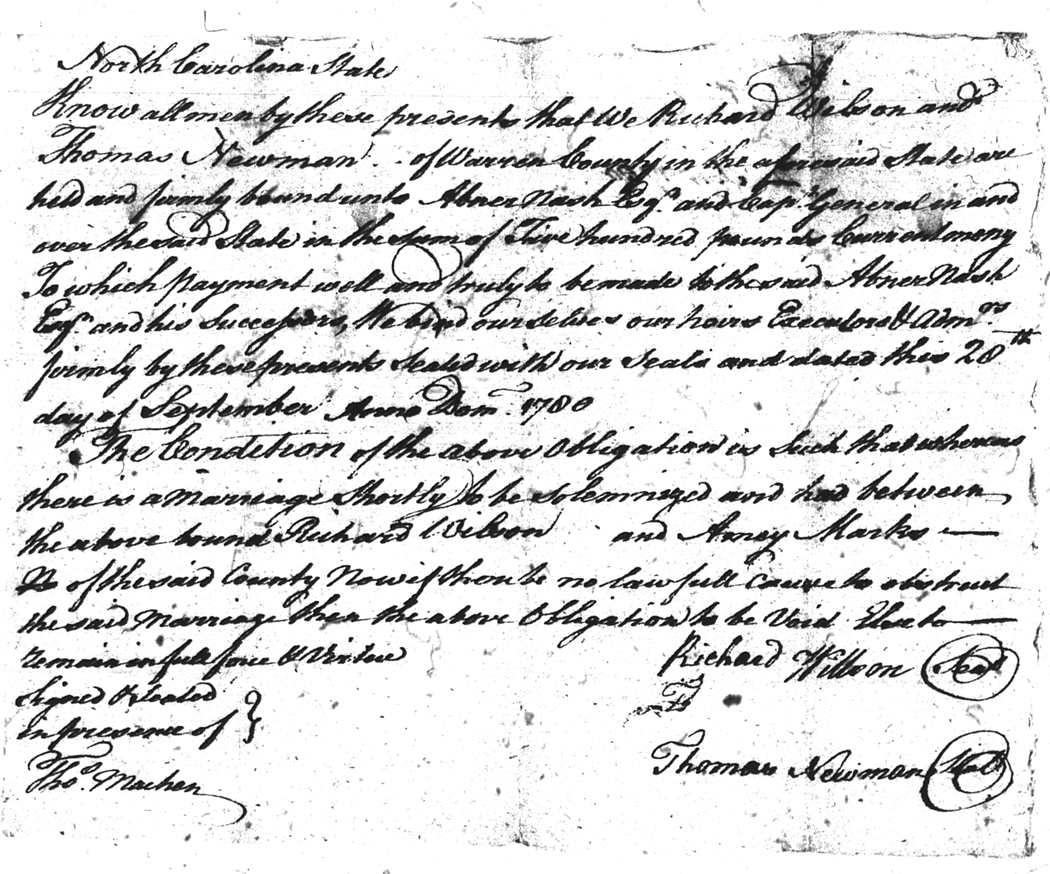 North Carolina State
Know all men by these presents that We Richard Wilson and
Thomas Newman . . of Warren County in the aforesaid State are
held and firmly bound unto Abner Nash Esqr. and Capt. General in and
over the said State in the sum of Five hundred pounds Current mony
To which payment well and truly to be made to the said Abner Nash
Esqr. and his Successors, We bind our selves our heirs Executors & Admrs.
firmly by these presents Sealed with our Seals and dated this 28th
day of September Anno Dom. 1780
The Condition of the above Obligation is Such that whereas
there is a Marriage Shortly to be Solemnized and had between
the above bound Richard Wilson and Amey Marks —
of the said County Now if thou be no lawfull Cause to obstruct
the said Marriage then the above Obligation to be Void Else to —
remain in full force & Virtue
Signed & Sealed
in presence of }
Thos. Machen
Richard Willson Seal
Thomas Newman Seal